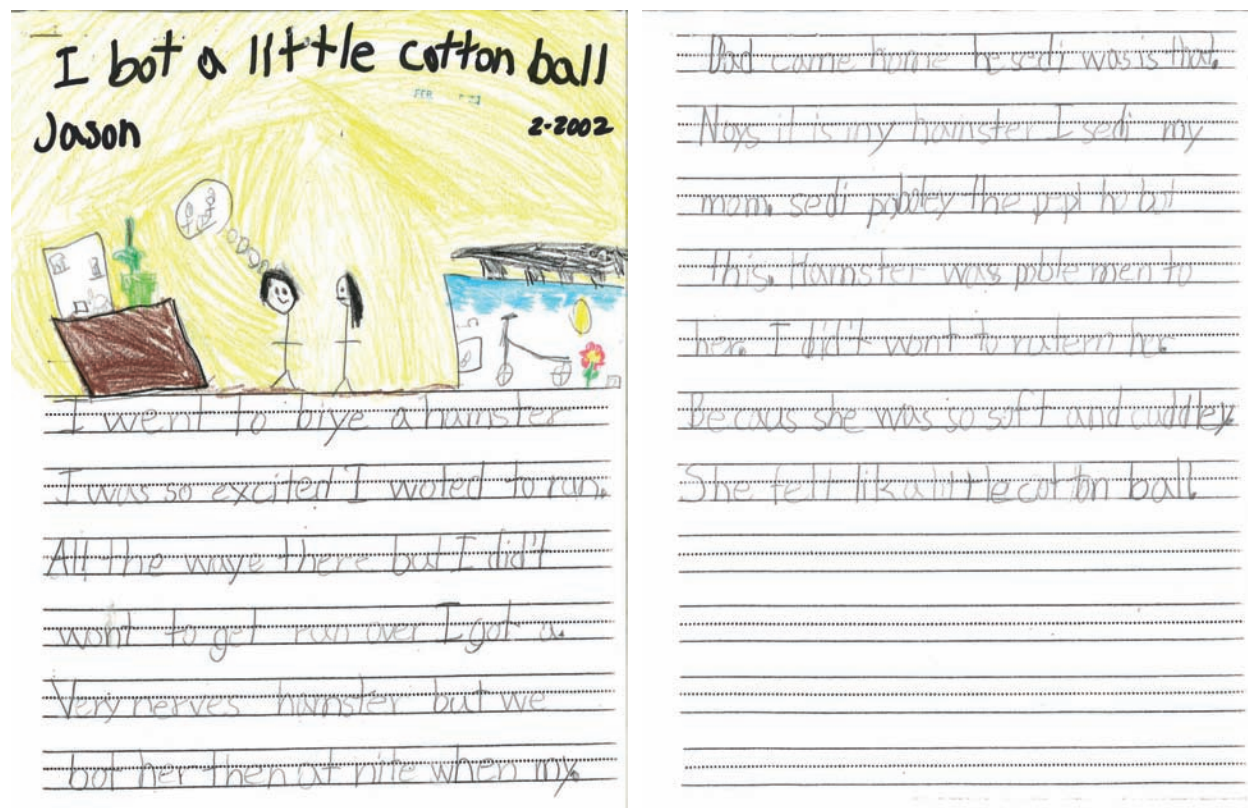 I bot a little cotton ball
Jason
2-2002
FEB
I went to biye a hamster
I was so excited I woted to run.
All the waye there but I did't
wont to get run over I got a.
Very nerves hamster but we
bot her then at nite when my.
Dad came home he sedi was is that.
Noys it is my hamster I sedi my
mom. sedi pobley the pepl ho bot
this. Hamster was poble men to
her. I did't wont to rutern her.
Becaus she was so soft and cuddley.
She felt lik a little cotton ball.